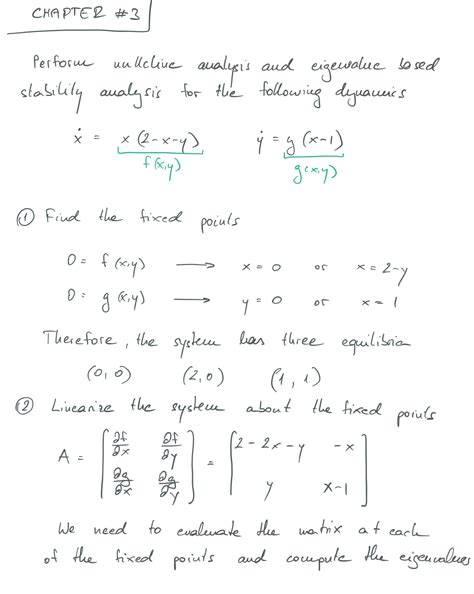 CHAPTER #3
Perform nullcline analysis and eigenvalue based
stability analysis for the following dynamics
ẋ = x (2-x-y)   ẏ = y (x-1)
f(x,y)   g(x,y)
① Find the fixed points
0 = f(x,y) ⟶ x = 0 or x = 2-y
0 = g(x,y) ⟶ y = 0 or x = 1
Therefore, the system has three equilibria
(0,0) (2,0) (1,1)
② Linearize the system about the fixed points
A = [∂f/∂x ∂f/∂y; ∂g/∂x ∂g/∂y] = [2-2x-y -x; y x-1]
We need to evaluate the matrix at each
of the fixed points and compute the eigenvalues